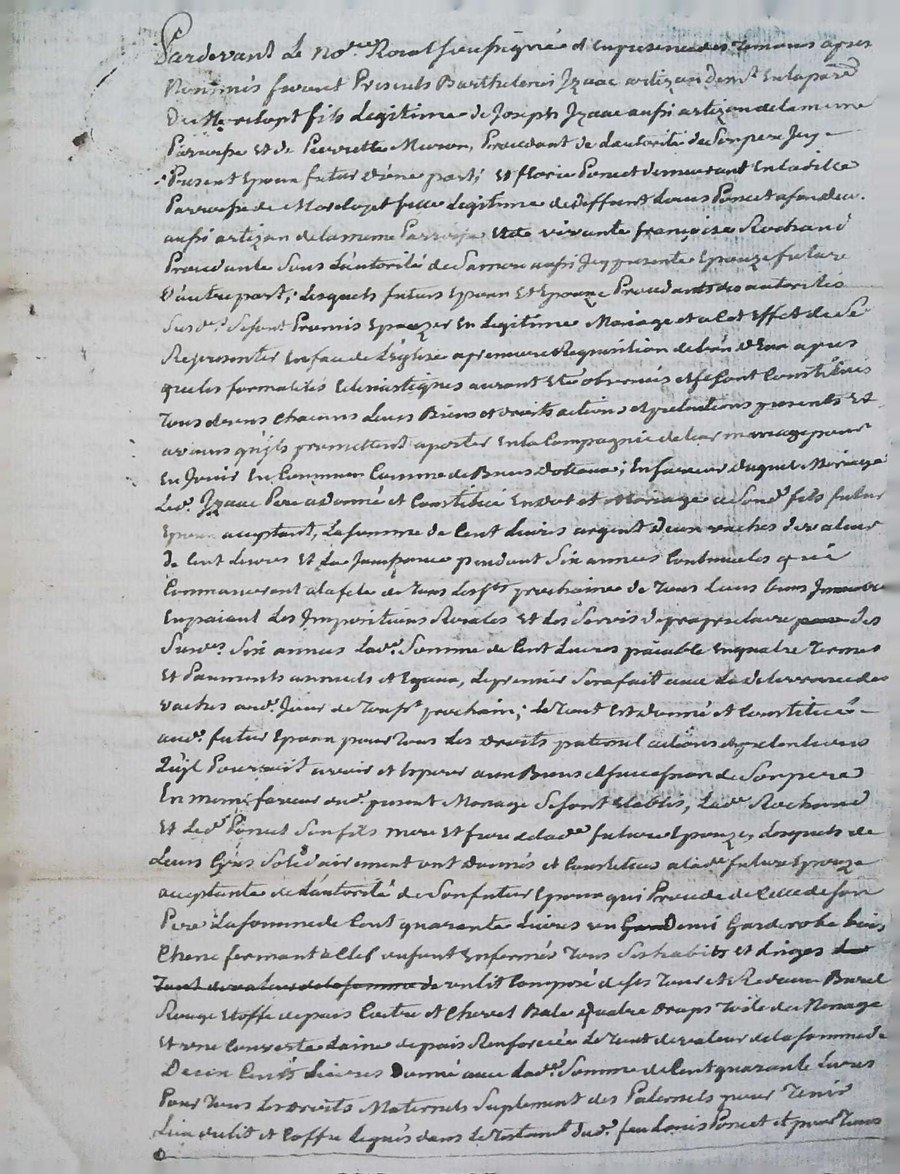 Pardevant Le No.re Royal soussigné et en presence des Temoins apres
Nommés furent Presents Barthelemis Jzaac artizan dem.t En la paré
Du fils Legitime de Joseph Jzaac aussi artizan de la meme
Parroisse Et de Pierrette Muron, Procedant de Lautorité de Son pere Jcy
Present Epoux futur d'une part; Et florie Poncet demeurant En la ditte
Parroisse de fille Legitime de deffunt Louis Poncet
aussi artizan de la meme Parroisse et de vivante françoise Rochand
Procedante Sous L'autorité de Sa mere aussi Jcy presente Epouze future
D'autre part; Lesquels futurs Epoux Et Epouze Procedants des autorités
Susd.es Se sont Promis Epouzer En Legitime Mariage et a Cet Effet de Se
Representer En face de L'Eglise a premiere Requisition de L'un d'Eux apres
que les formalités Eclesiastiques auront Eté observés et se sont Constitués
Tous deux chacuns Leurs Biens et droits actions et pretentions presents Et
avenir qu'ils promettent aporter En la Compagnie de leur mariage pour
En Jouir En Commun Comme de Biens Dotaux; En faveur duquel Mariage
Led. Jzaac Pere a donné et Constitué En dot et Mariage a Sond. fils futur
Epoux acceptant, La somme de Cent Livres argent deux vaches de valeur
de Cent Livres Et La Jouissance pendant Six années Continuelles qui
Commanceront a la fete de Tous Les s.ts prochaine de Tous Leurs biens
En païant Les Impositions Royales Et Les Servis des
Susd.es Six années Lad.e Somme de Cent Livres païable En quatre Termes
Et Paiements annuels et Egaux, Le premier Sera fait avec La delivrance des
vaches aud. Jour de Tous.ts prochain; Le Tout Est donné et Constitué
aud. futur Epoux pour Tous Les Droits paternel actions et pretentions
Qu'il Pourroit avoir et Esperer aux Biens et succession de Son pere
En meme faveur du present Mariage Se sont Etablis, Lad.e Rochand
Et Led. Poncet Son fils mere et frere de lad.e future Epouze, Lesquels de
Leurs Grés Solidairement ont donnés et Constitués a lad.e future Epouze
acceptante de L'autorité de Son futur Epoux qui Procede de Celle de son
Pere La somme de Cent quarante Livres un Demi Garderobe bois
Chene fermant a Clef Enfermés Tous Ses habits et Linges
Tout de valeur de la somme de un lit Composé de Ses Tour et Rideaux Burel
Rouge Etoffe de païs Coitre et Chevet Bale quatre Draps Toile de Menage
Et une Couverte Laine de païs Renforcée Le Tout de valeur de la somme de
Deux Cents Livres Donné avec Lad.e Somme de Cent quarante Livres
Pour Tous Les droits Maternels Suplement des Paternels pour Tenir
Lieu du lit et Coffre Legués dans Le Testam.t dud. feu Louis Poncet et pour Tous